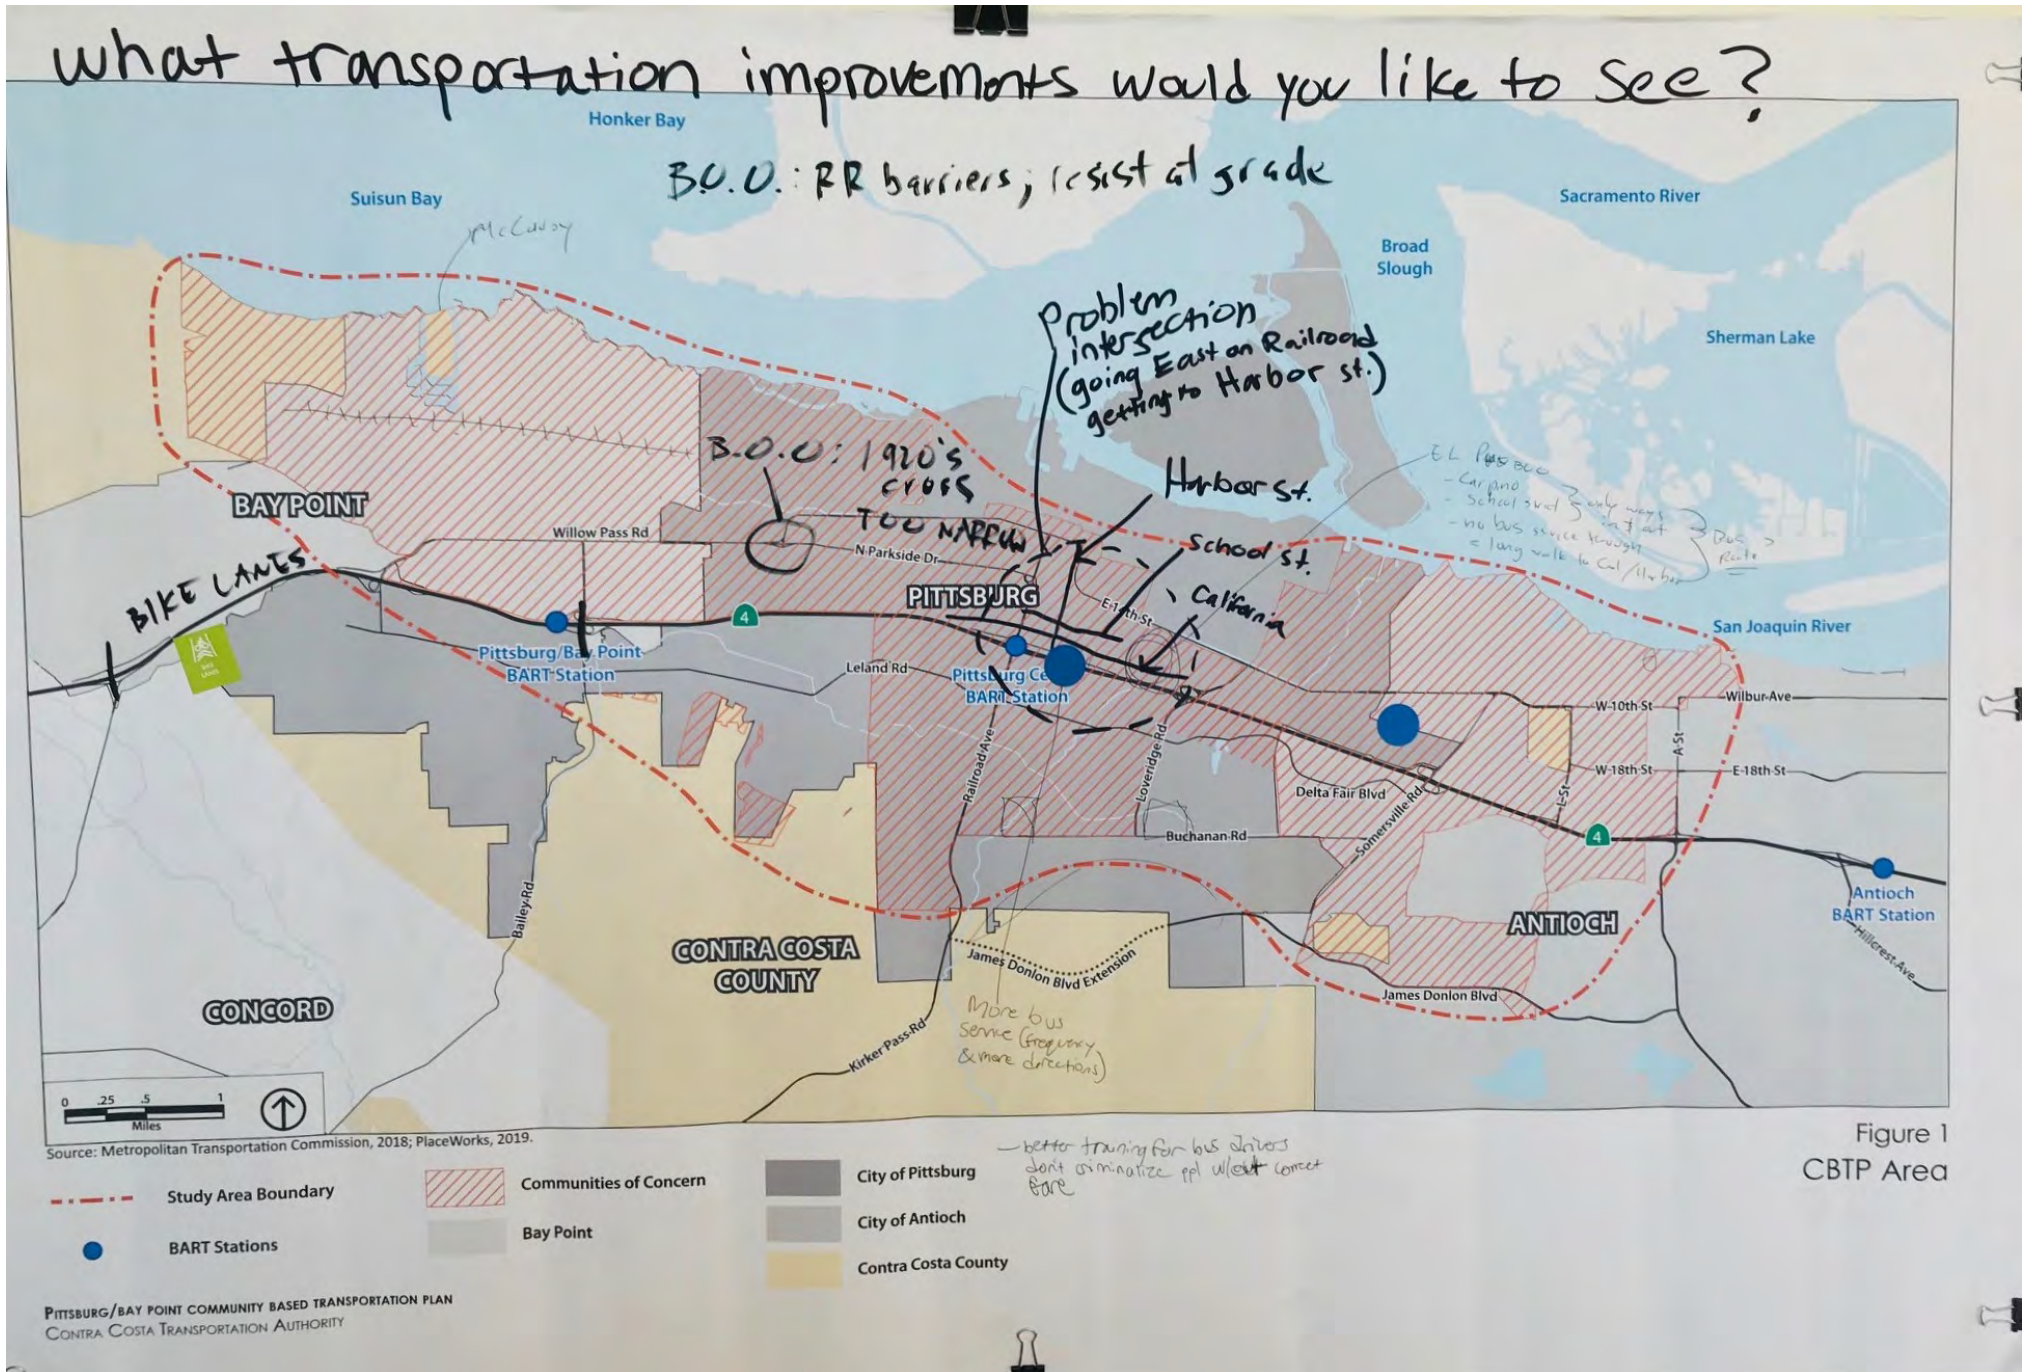 what transportation improvements would you like to see?
Honker Bay
B.O.O.: RR barriers; resist at grade
Suisun Bay
Sacramento River
Broad
Slough
Problem
intersection
(going East on Railroad
getting to Harbor st.)
Sherman Lake
B.O.O: 1920's
cross
TOO NARROW
Harbor St.
EL
- School
- no bus service through
< long walk to Cal/Harbor
Bus
Route
BAY POINT
Willow Pass Rd
N Parkside Dr
School st.
BIKE LANES
PITTSBURG
E 14th St
California
4
San Joaquin River
Pittsburg/Bay Point
BART Station
Leland Rd
Pittsburg Ce
BART Station
Wilbur Ave
W 10th St
A St
W 18th St
E 18th St
L St
Railroad Ave
Loveridge Rd
Delta Fair Blvd
Somersville Rd
Buchanan Rd
4
Bailey Rd
Antioch
BART Station
ANTIOCH
Hillcrest Ave
CONTRA COSTA
COUNTY
James Donlon Blvd Extension
James Donlon Blvd
CONCORD
More bus
Service (frequency
& more directions)
Kirker Pass Rd
0 .25 .5 1
Miles
Source: Metropolitan Transportation Commission, 2018; PlaceWorks, 2019.
- better training for bus drivers
don't criminalize ppl w/out correct
fare
Figure 1
CBTP Area
Study Area Boundary
BART Stations
Communities of Concern
Bay Point
City of Pittsburg
City of Antioch
Contra Costa County
PITTSBURG/BAY POINT COMMUNITY BASED TRANSPORTATION PLAN
CONTRA COSTA TRANSPORTATION AUTHORITY